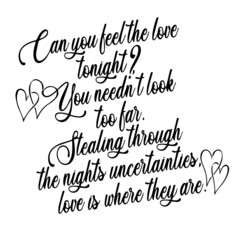 Can you feel the love
tonight?
You needn't look
too far.
Stealing through
the nights uncertainties,
love is where they are.